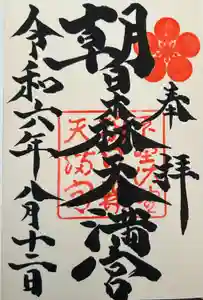 奉拝
朝日森天満宮
令和六年八月十二日